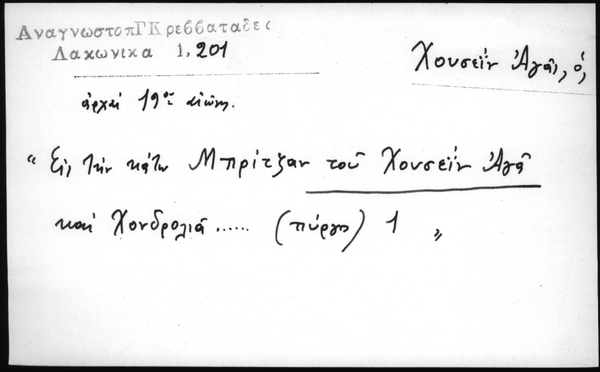 ΑναγνωστοπΓΚρεββαταδες
Λακωνικα 1, 201
Χουσεΐν Ἀγᾶ, ὁ,
ἀρχαί 19ου αἰῶνος.
" Εἰς τήν κάτω Μπρίτζαν τοῦ Χουσεΐν Ἀγᾶ
καί Χονδρολιᾶ ...... (πύργος) 1 "